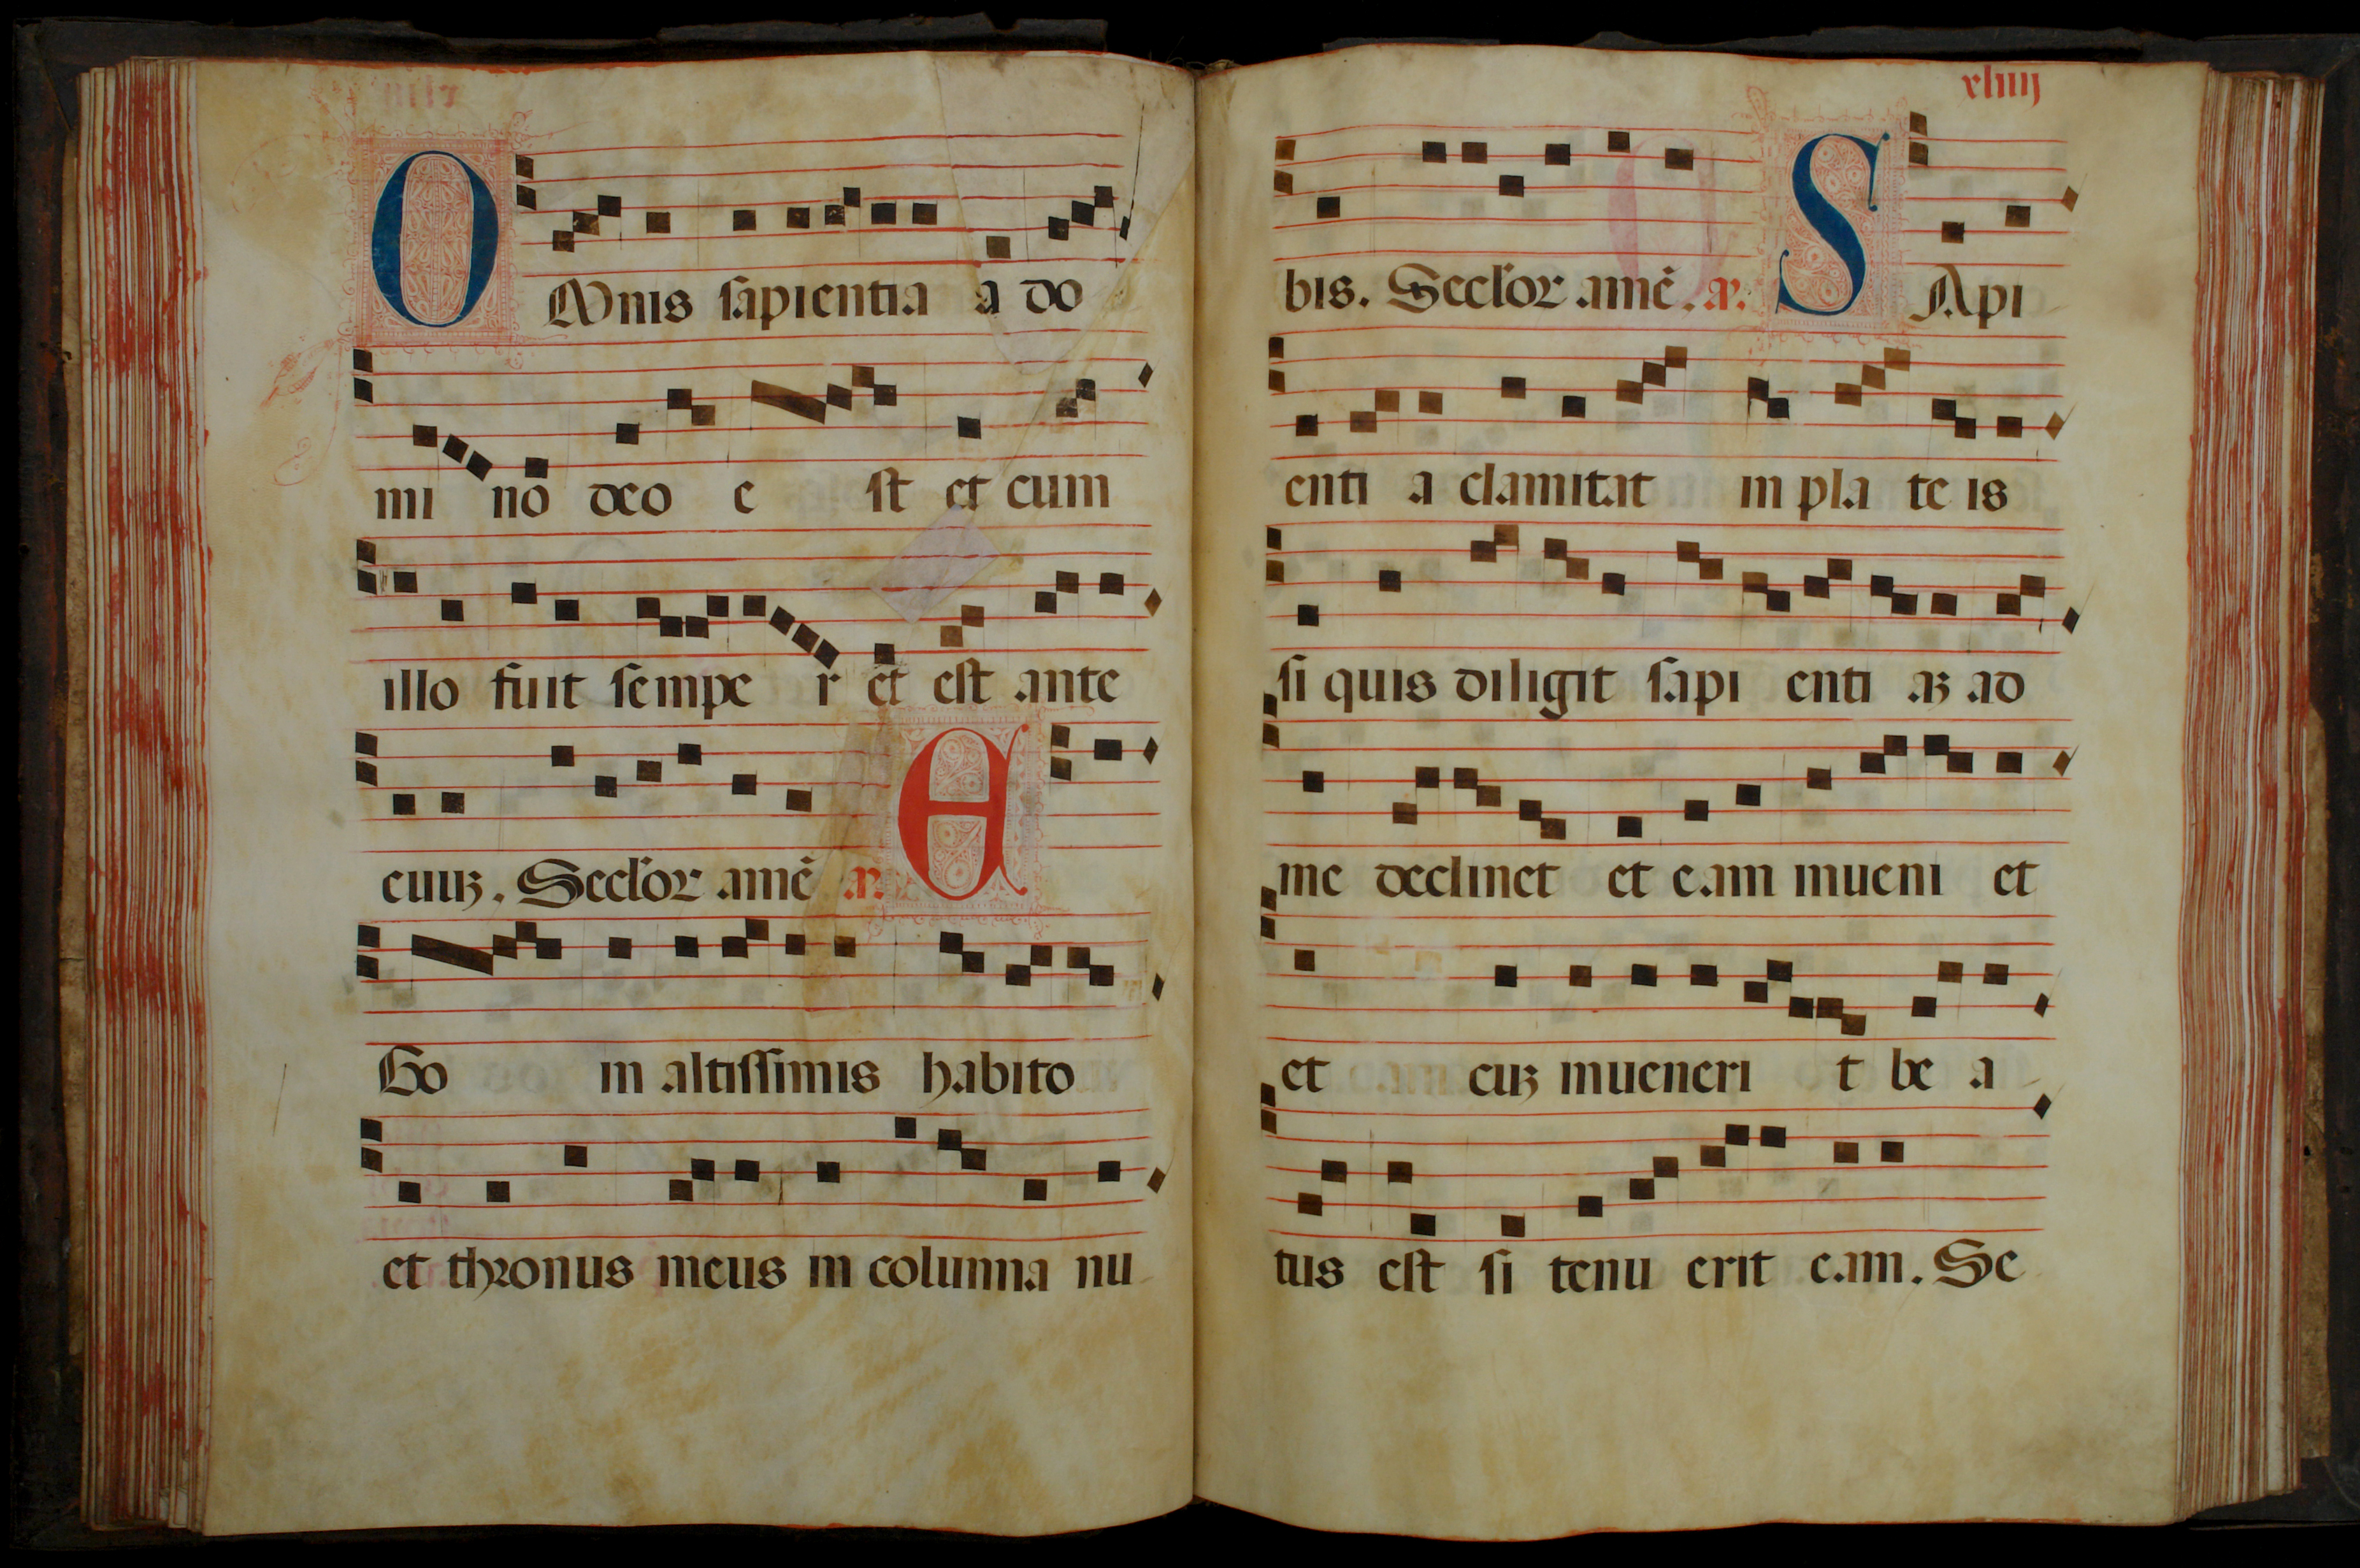 OMnis sapientia a do
mi no deo e st et cum
illo fuit sempe r et est ante
euuꝫ. Seclor̛ amē a.
E
Go in altissimis habito
et thronus meus in columna nu
xliiij
bis. Seclor̛ amē. a. S Api
enti a clamitat in pla te is
si quis diligit sapi enti aꝫ ad
me declinet et eam inueni et
et cuꝫ inueneri t be a
tus est si tenu erit eam. Se